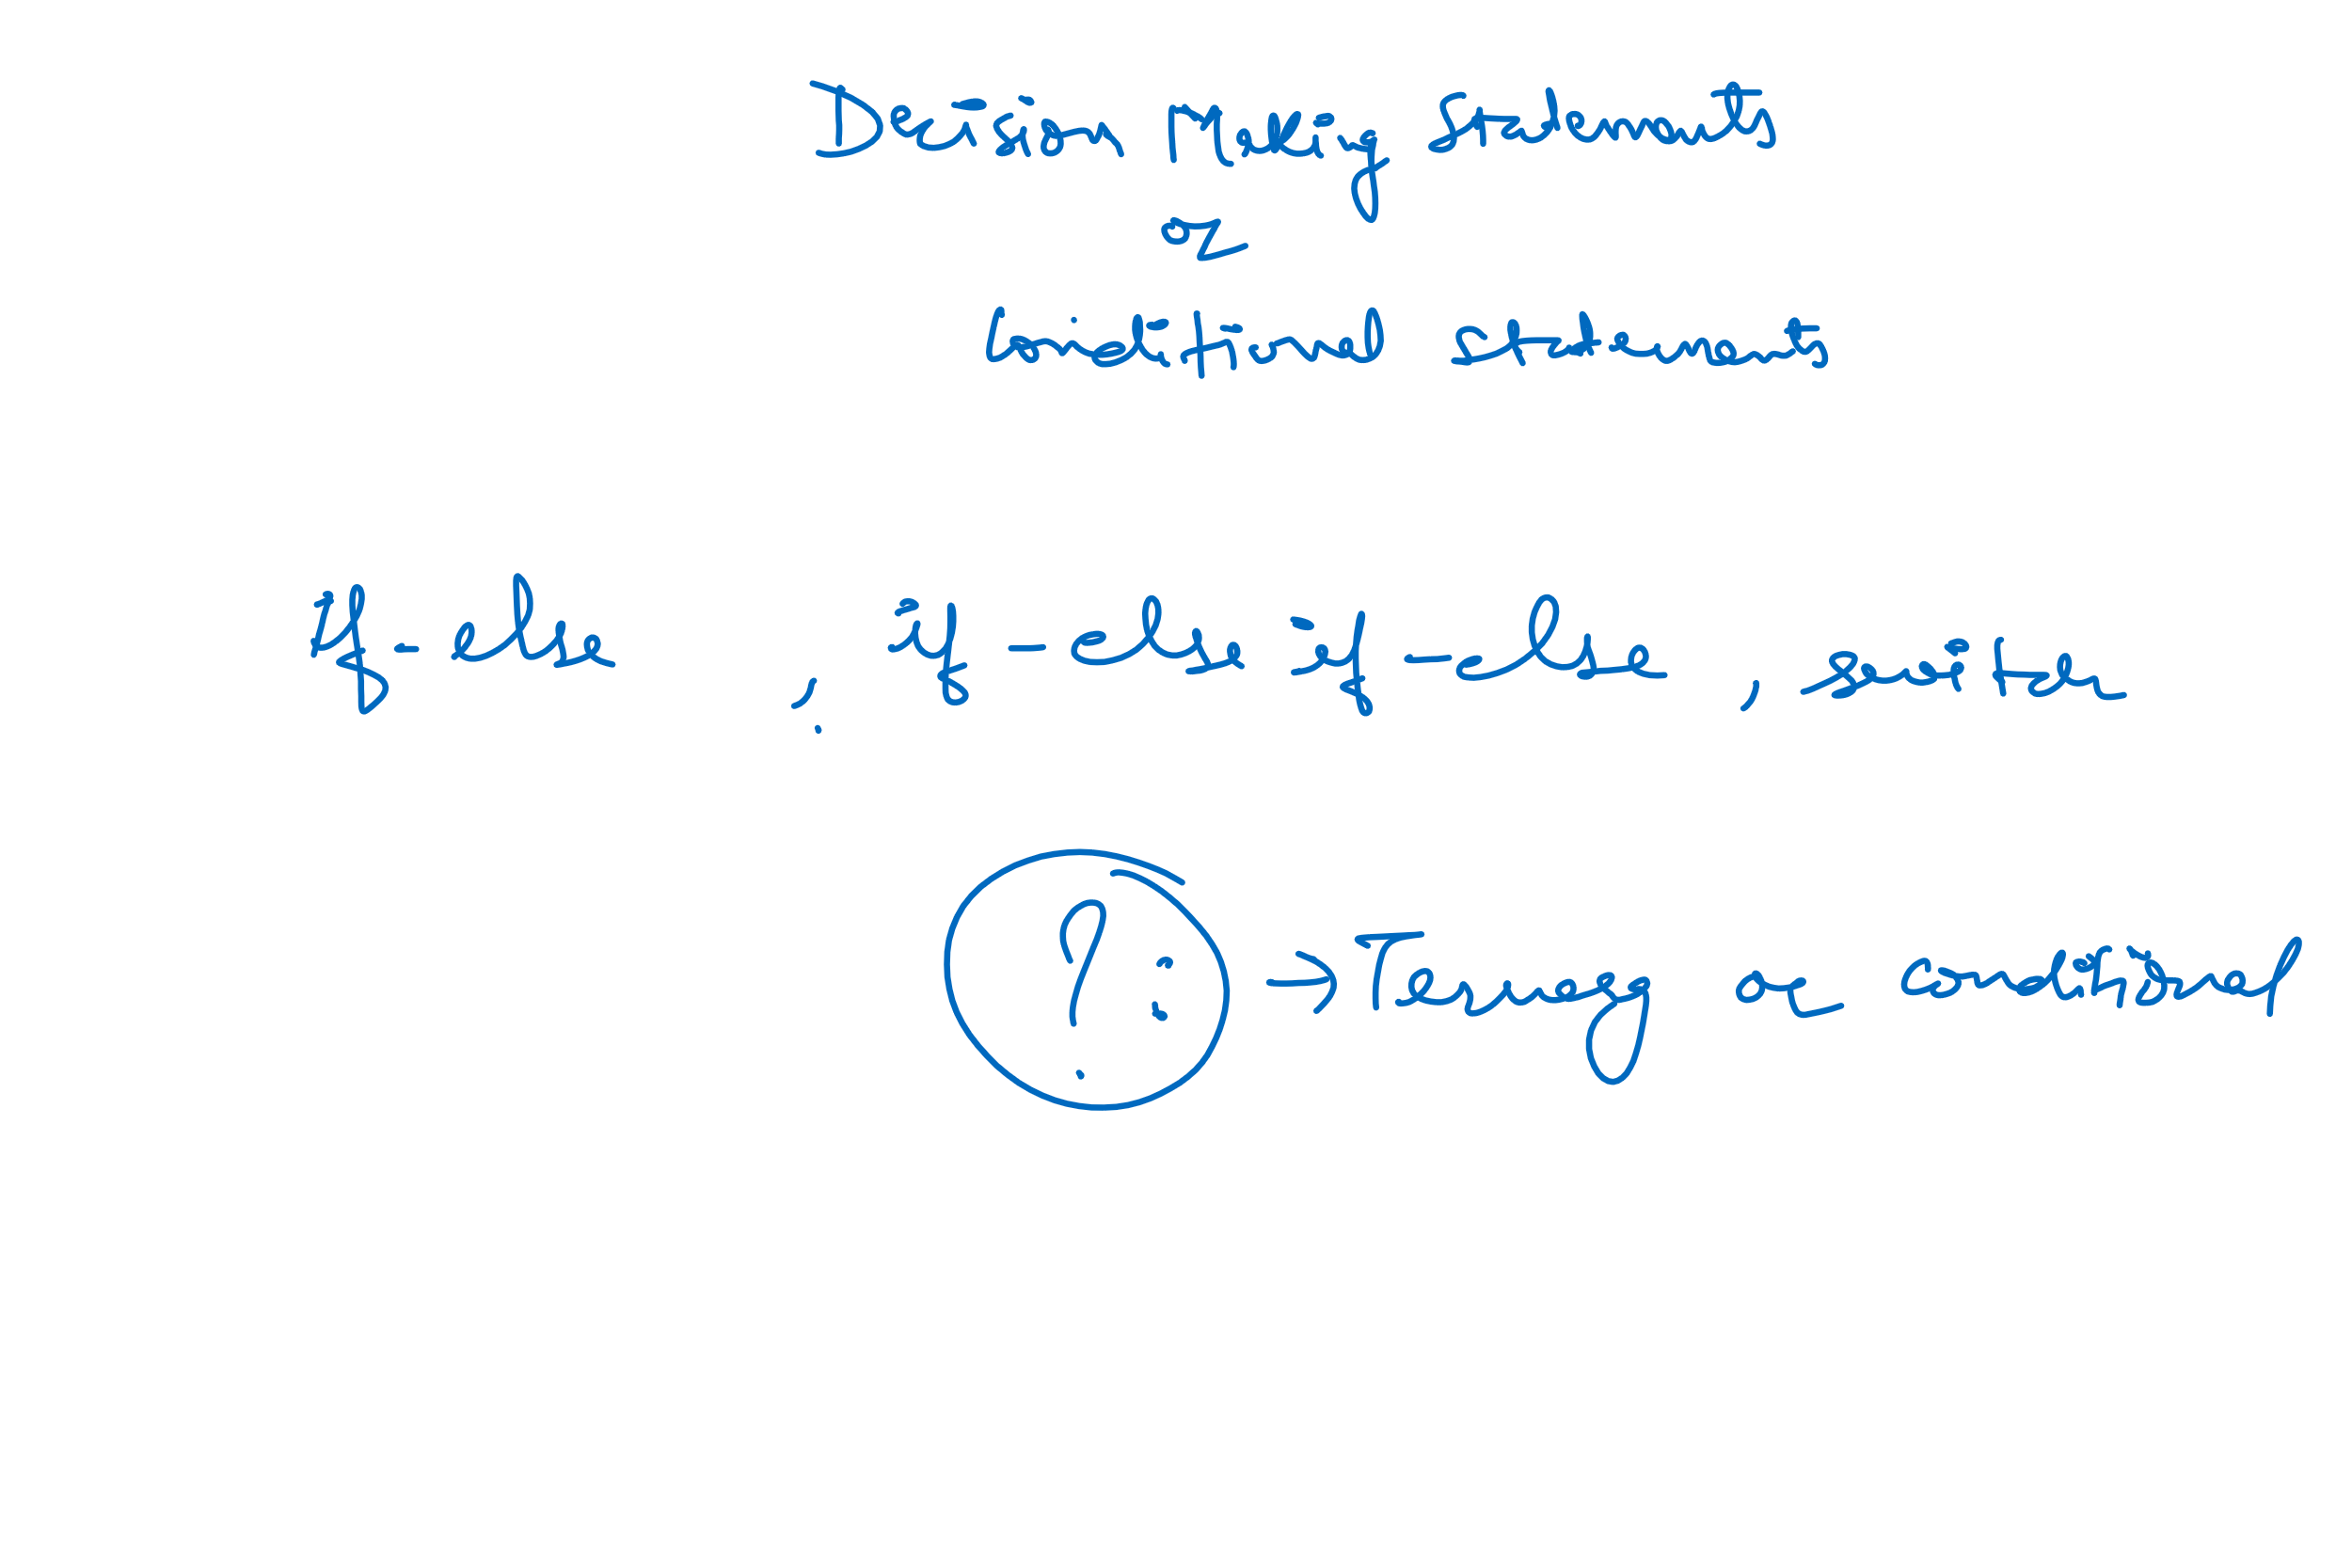 Decision Making Statements
or
Conditional statements
if - else , if - else if - else , switch
? : → Ternary or conditional